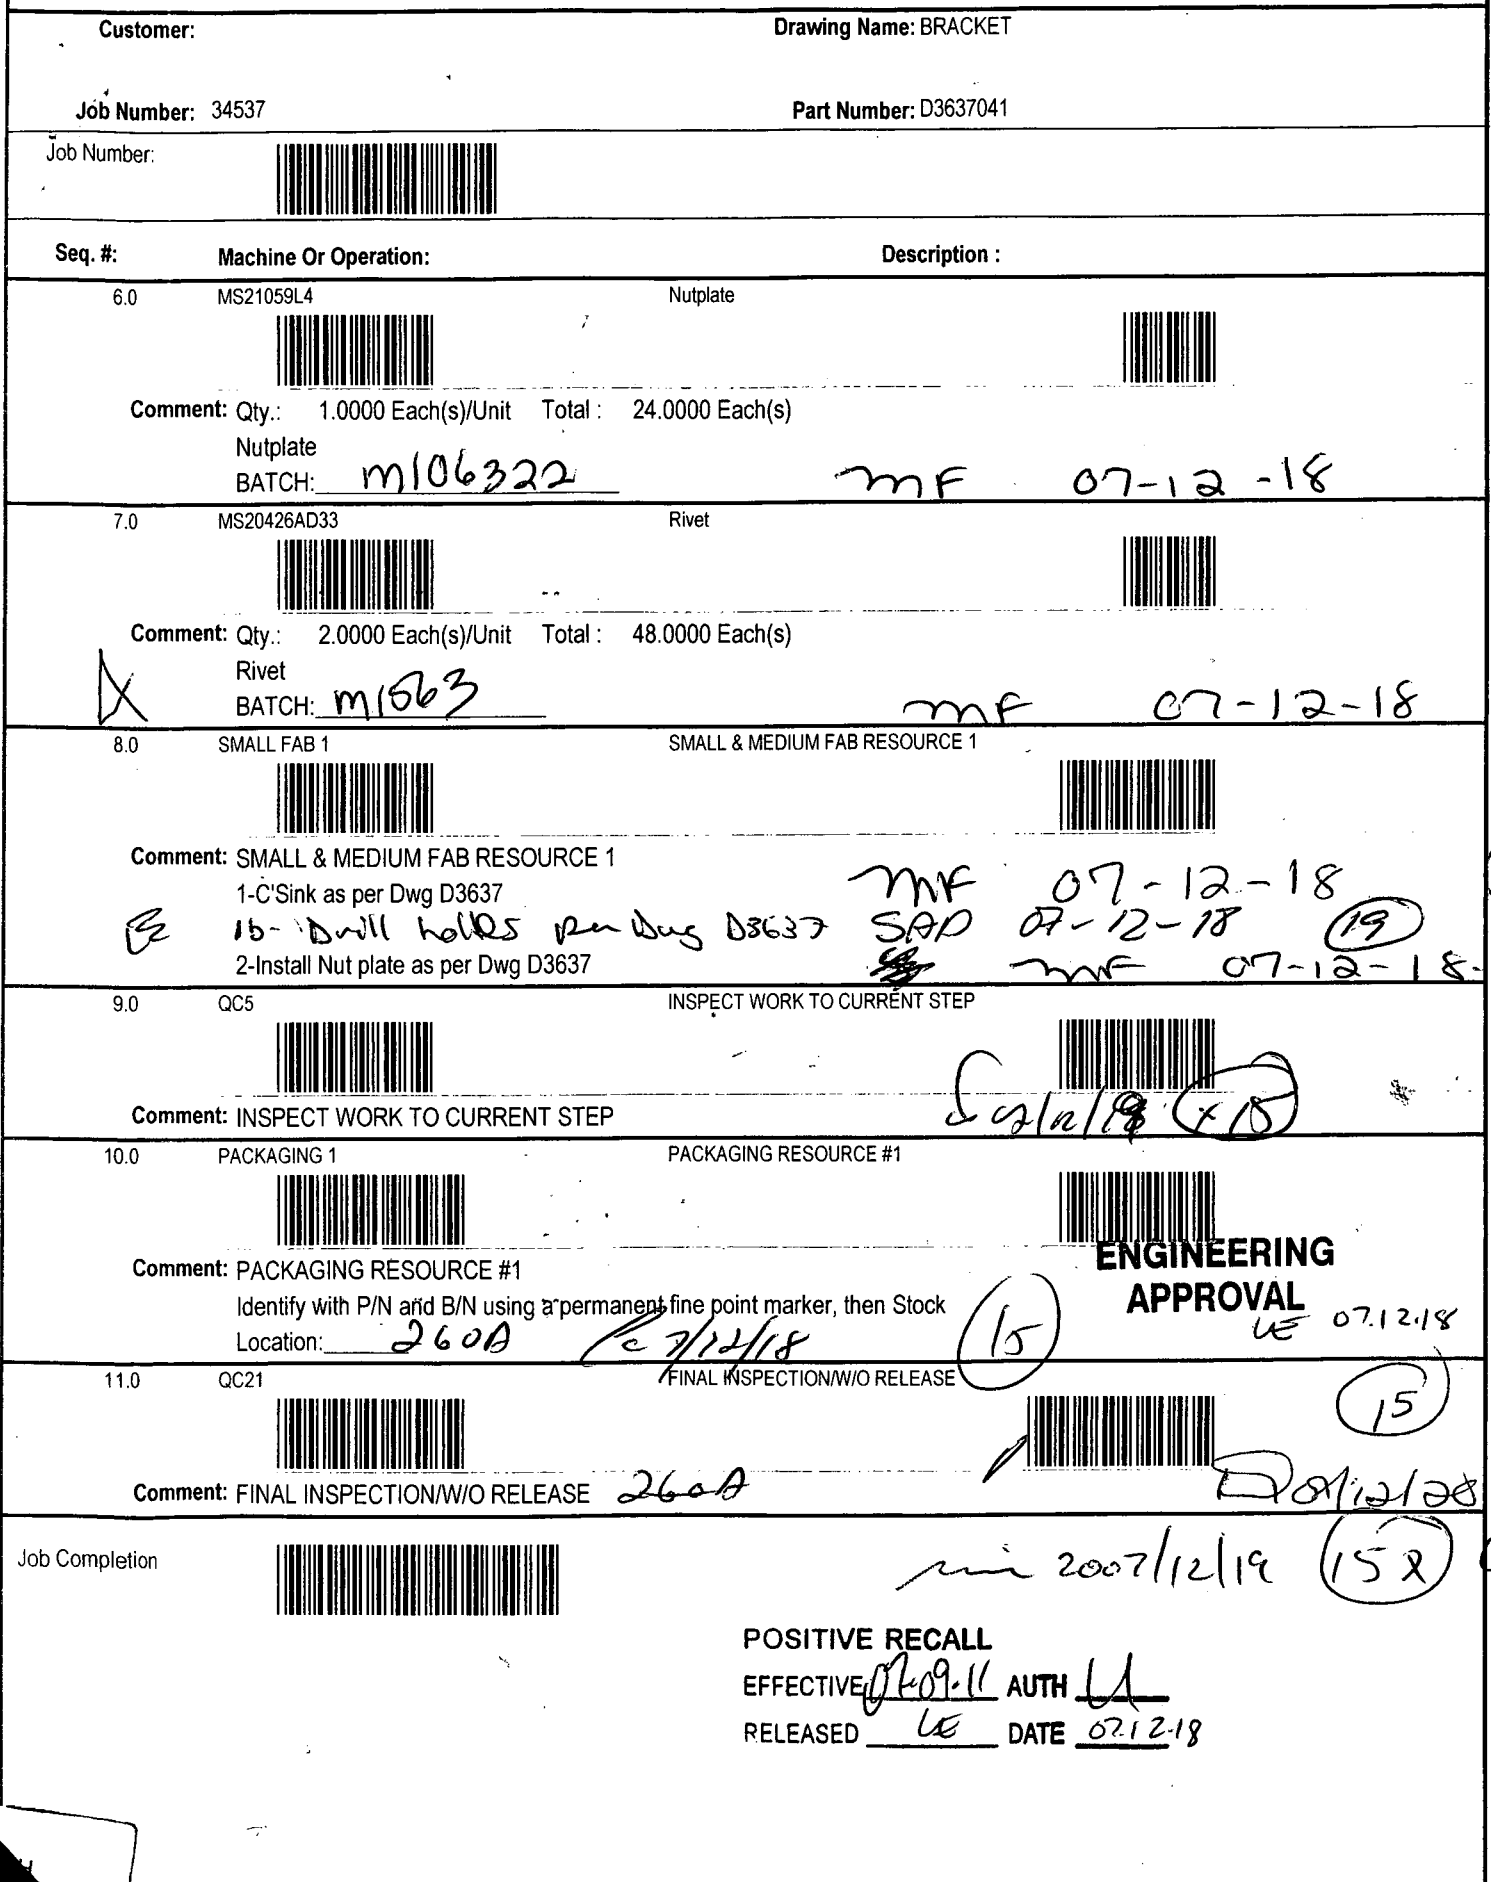 Customer: Drawing Name: BRACKET
Job Number: 34537 Part Number: D3637041
Job Number:
Seq. #: Machine Or Operation: Description :
6.0 MS21059L4 Nutplate
Comment: Qty.: 1.0000 Each(s)/Unit Total : 24.0000 Each(s)
Nutplate
BATCH: M106322 MF 07-12-18
7.0 MS20426AD33 Rivet
Comment: Qty.: 2.0000 Each(s)/Unit Total : 48.0000 Each(s)
Rivet
BATCH: MF 07-12-18
8.0 SMALL FAB 1 SMALL & MEDIUM FAB RESOURCE 1
Comment: SMALL & MEDIUM FAB RESOURCE 1
1-C'Sink as per Dwg D3637 MF 07-12-18
1b- Drill holes per Dwg D3637 SAD 07-12-18 19
2-Install Nut plate as per Dwg D3637 MF 07-12-18
9.0 QC5 INSPECT WORK TO CURRENT STEP
Comment: INSPECT WORK TO CURRENT STEP
10.0 PACKAGING 1 PACKAGING RESOURCE #1
ENGINEERING
APPROVAL
Comment: PACKAGING RESOURCE #1
Identify with P/N and B/N using a permanent fine point marker, then Stock
LE 07.12.18
Location: 260A 7/12/18 15
11.0 QC21 FINAL INSPECTION/W/O RELEASE 15
Comment: FINAL INSPECTION/W/O RELEASE 260A
Job Completion 2007/12/19 15
POSITIVE RECALL
EFFECTIVE 07-09-11 AUTH
RELEASED LE DATE 07.12.18